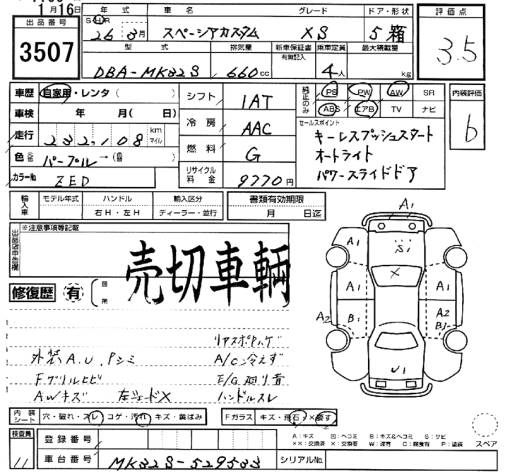 1月16日
出品番号 年式 車名 グレード ドア・形状 評価点
3507 26年8月 スペーシアカスタム XS 5 箱 3.5
型式 排気量 新車保証書 有無記入 乗車定員 最大積載量
DBA-MK32S 660cc 4人 kg
車歴 自家用・レンタ( ) シフト 1AT 純正のみ PS PW AW SR 内装評価
車検 年 月( ) 冷房 AAC ABS エアB TV ナビ b
走行 232,108 km マイル 燃料 G セールスポイント
キーレスプッシュスタート
色 パープル→( ) リサイクル料金 9770円 オートライト
カラー No ZED パワースライドドア
輸入車 モデル年式 ハンドル 輸入区分 書類有効期限
右H・左H ディーラー・並行 月 日迄
出品店申告欄 ※注意事項等記載
売切車輌
修復歴 有
A1
A1 S1 A1
X
A2 B1 A2
B1
U1
リアスポイラキズ
外装A.U.Pシミ A/C冷えず
Fグリルヒビ E/G廻り音
AWキズ 左シードX ハンドルスレ
内装シート 穴・破れ・スレ コゲ・汚れ キズ・黄ばみ Fガラス キズ・飛石 X 要す
検査員 11 登録番号 スペア
車台番号 MK32S-529533 シリアルNo.
A：キズ U：ヘコミ B：キズ&ヘコミ S：サビ